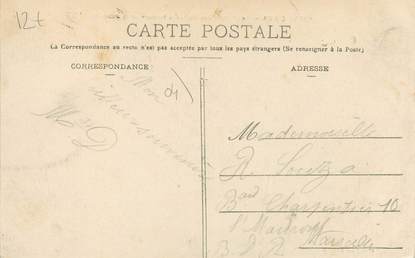 12t
CARTE POSTALE
La Correspondance au recto n'est pas acceptée par tous les pays étrangers (Se renseigner à la Poste)
CORRESPONDANCE
ADRESSE
Mon
souvenir
Mademoiselle
R.
Bard Charpentier 10
Marseille
B D R